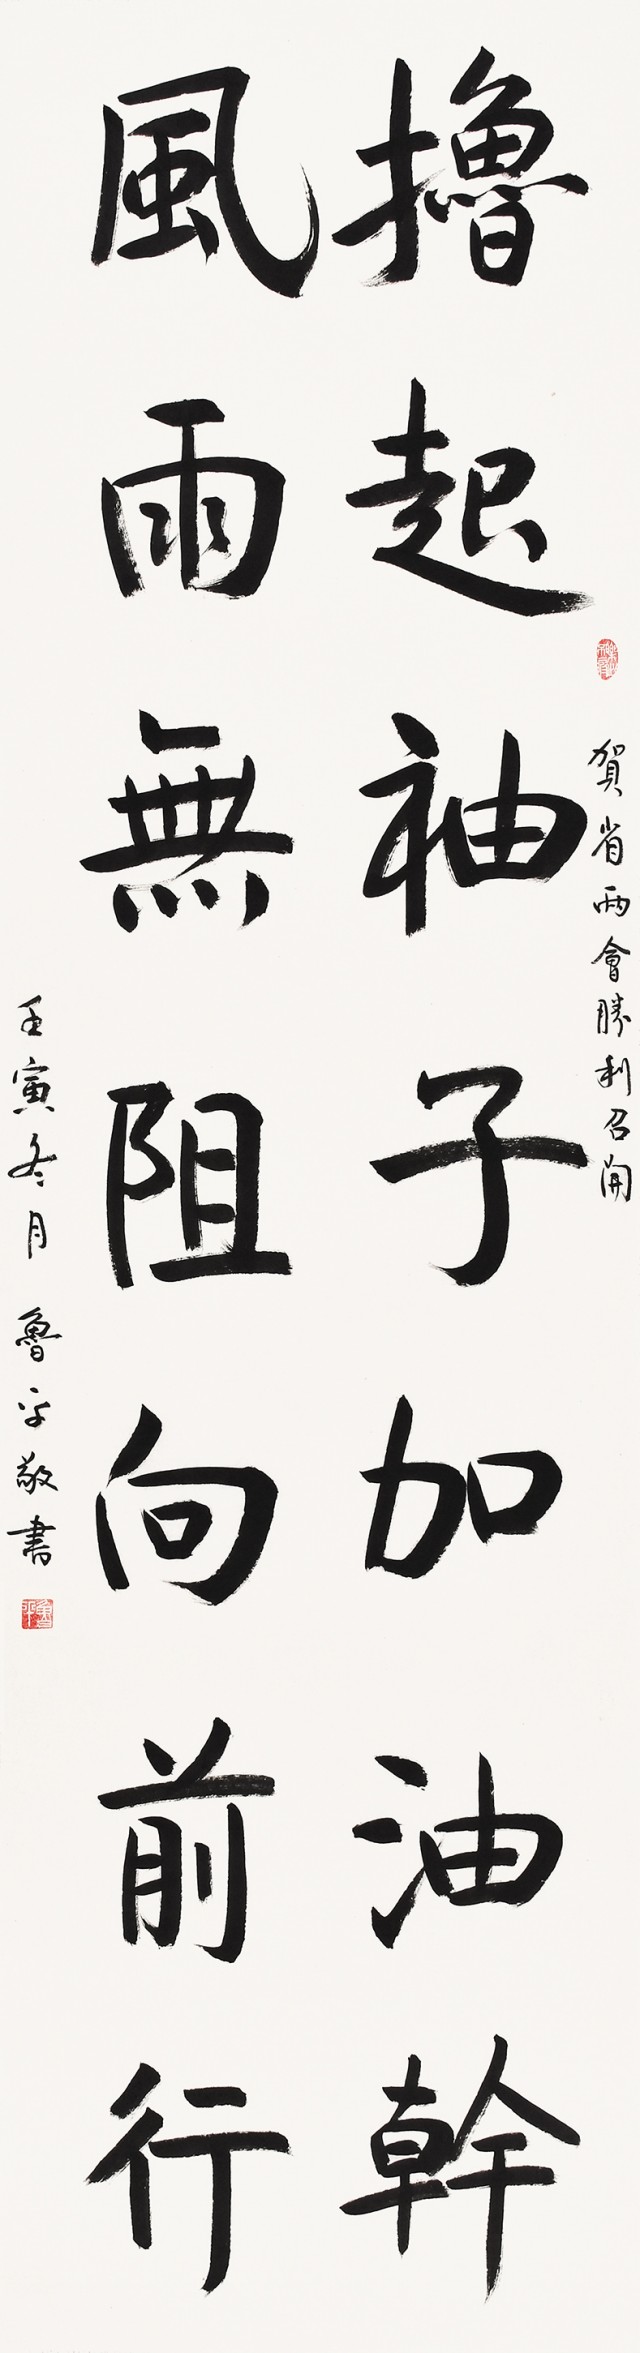 賀省兩會勝利召開
擼起袖子加油幹
風雨無阻向前行
壬寅冬月 魯平敬書
魯平